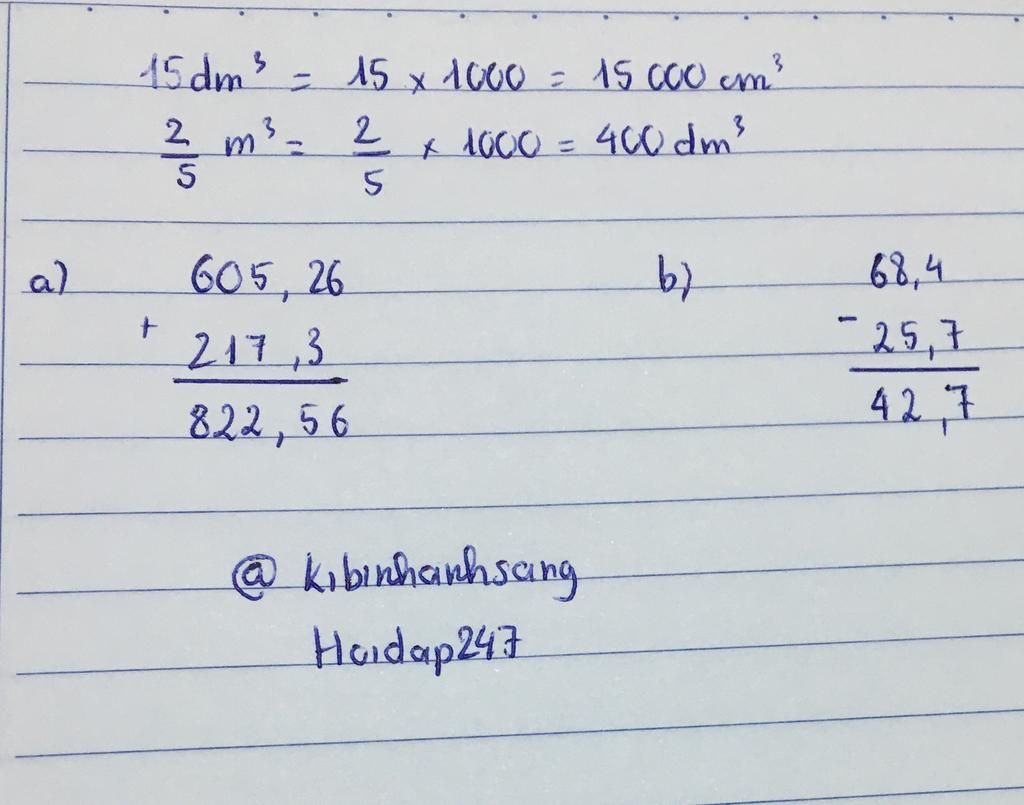 15 dm³ = 15 x 1000 = 15 000 cm³
2/5 m³ = 2/5 x 1000 = 400 dm³
a) 605,26 b) 68,4
+ 217,3 - 25,7
822,56 42,7
@ kibinhanhsang
Hoidap247